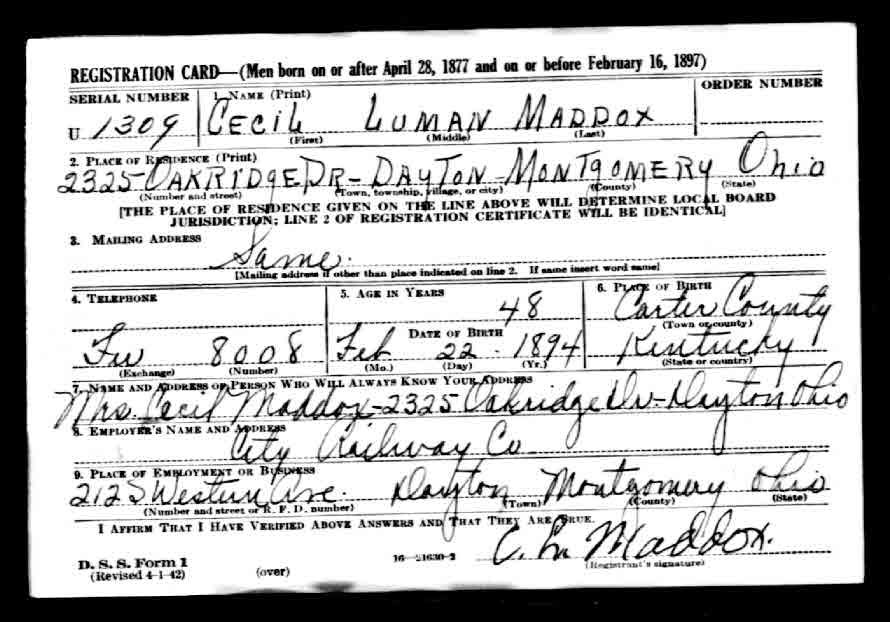 REGISTRATION CARD—(Men born on or after April 28, 1877 and on or before February 16, 1897)
SERIAL NUMBER 1. NAME (Print) ORDER NUMBER
U 1309 CECIL LUMAN MADDOX
(First) (Middle) (Last)
2. PLACE OF RESIDENCE (Print)
2325 OAKRIDGE DR - DAYTON - MONTGOMERY Ohio
(Number and street) (Town, township, village, or city) (County) (State)
[THE PLACE OF RESIDENCE GIVEN ON THE LINE ABOVE WILL DETERMINE LOCAL BOARD
JURISDICTION; LINE 2 OF REGISTRATION CERTIFICATE WILL BE IDENTICAL]
3. MAILING ADDRESS
Same.
[Mailing address if other than place indicated on line 2. If same insert word same]
4. TELEPHONE 5. AGE IN YEARS 6. PLACE OF BIRTH
48 Carter County
DATE OF BIRTH (Town or county)
Fu 8008 Feb 22 - 1894 Kentucky
(Exchange) (Number) (Mo.) (Day) (Yr.) (State or country)
7. NAME AND ADDRESS OF PERSON WHO WILL ALWAYS KNOW YOUR ADDRESS
Mrs. Cecil Maddox - 2325 Oakridge Dr - Dayton Ohio
8. EMPLOYER'S NAME AND ADDRESS
City Railway Co
9. PLACE OF EMPLOYMENT OR BUSINESS
212 S Western Ave. Dayton Montgomery Ohio
(Number and street or R. F. D. number) (Town) (County) (State)
I AFFIRM THAT I HAVE VERIFIED ABOVE ANSWERS AND THAT THEY ARE TRUE.
C. L. Maddox.
D. S. S. Form 1 16—21630-2 (Registrant's signature)
(Revised 4-1-42) (over)